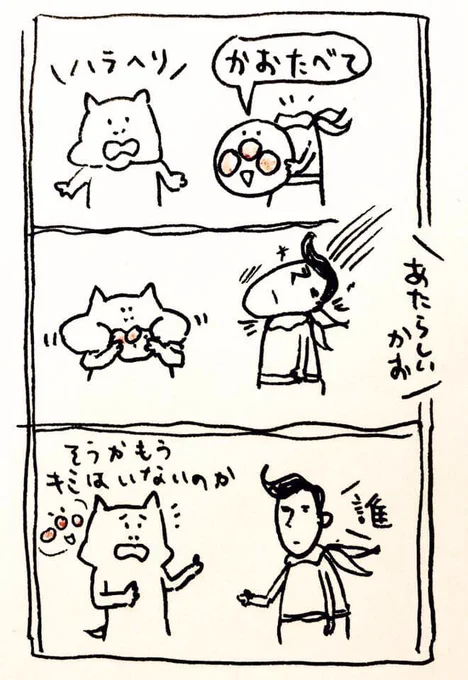 ハラヘリ
かおたべて
あたらしい
かお
そうかもう
キミはいないのか
誰